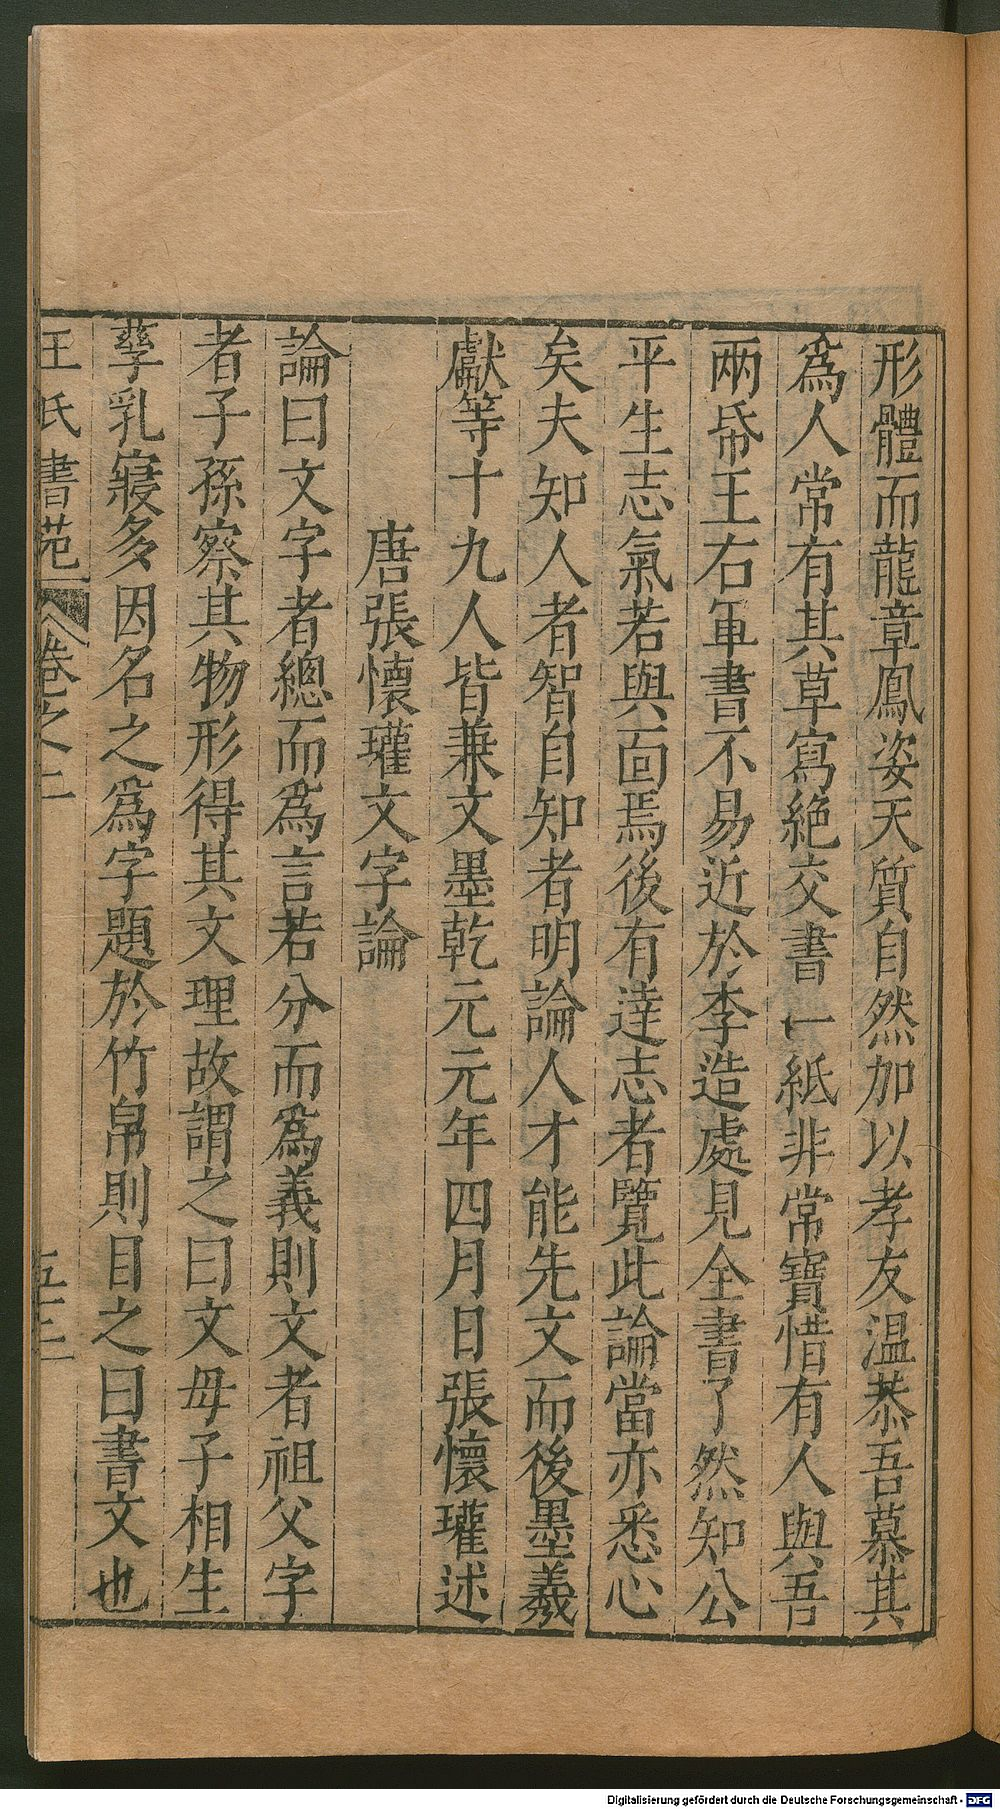 形體而龍章鳳姿天質自然加以孝友温恭吾慕其
為人常有其草寫絶交書一紙非常寶惜有人與吾
兩帋王右軍書不易近於李造處見全書了然知公
平生志氣若與面焉後有達志者覽此論當亦悉心
矣夫知人者智自知者明論人才能先文而後墨羲
獻等十九人皆兼文墨乾元元年四月日張懷瓘述
唐張懷瓘文字論
論曰文字者總而為言若分而為義則文者祖父字
者子孫察其物形得其文理故謂之曰文母子相生
孳乳寖多因名之為字題於竹帛則目之曰書文也
王氏書苑 卷之二 五十三
Digitalisierung gefördert durch die Deutsche Forschungsgemeinschaft - DFG